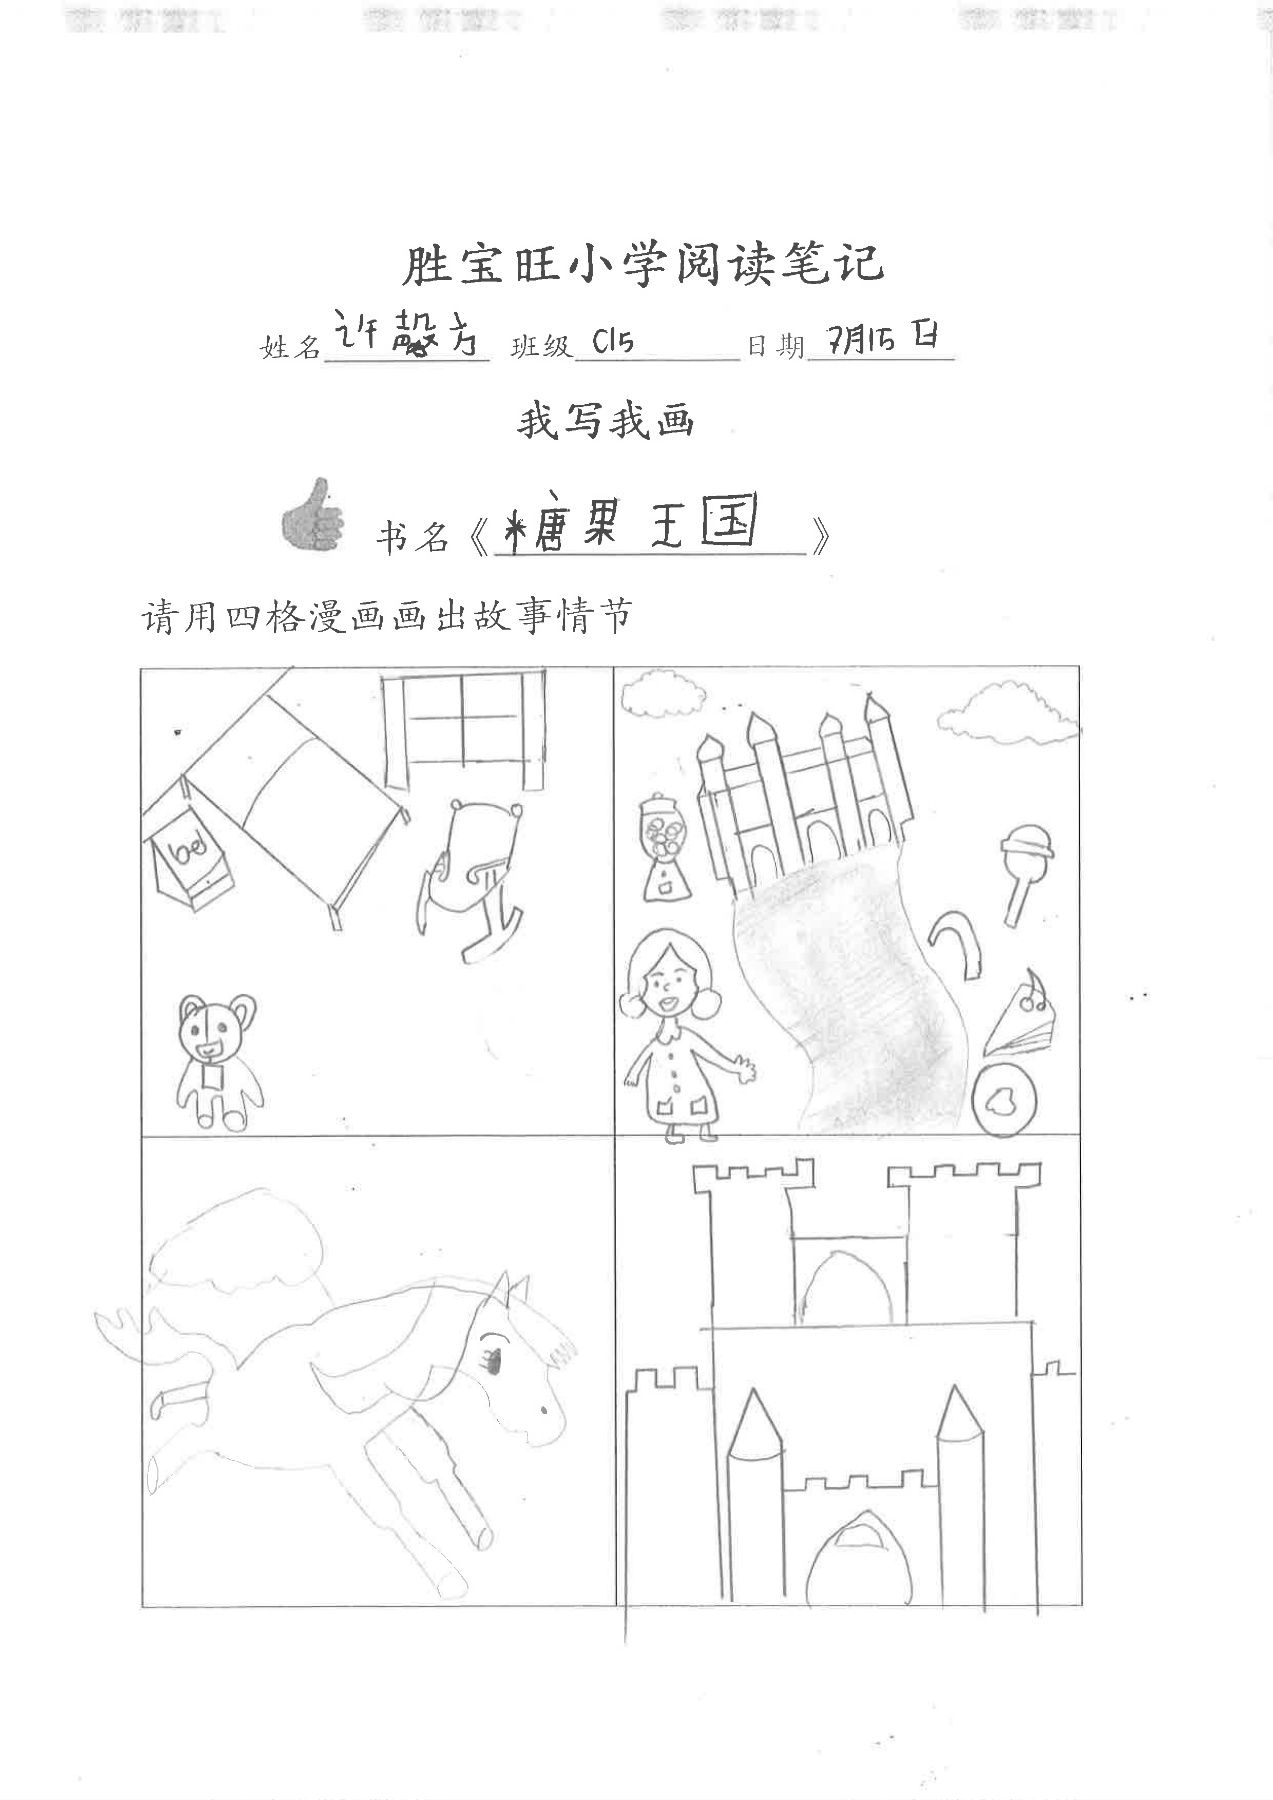 胜宝旺小学阅读笔记
姓名 许馨方 班级 C15 日期 7月15日
我写我画
书名《糖果王国》
请用四格漫画画出故事情节
bed